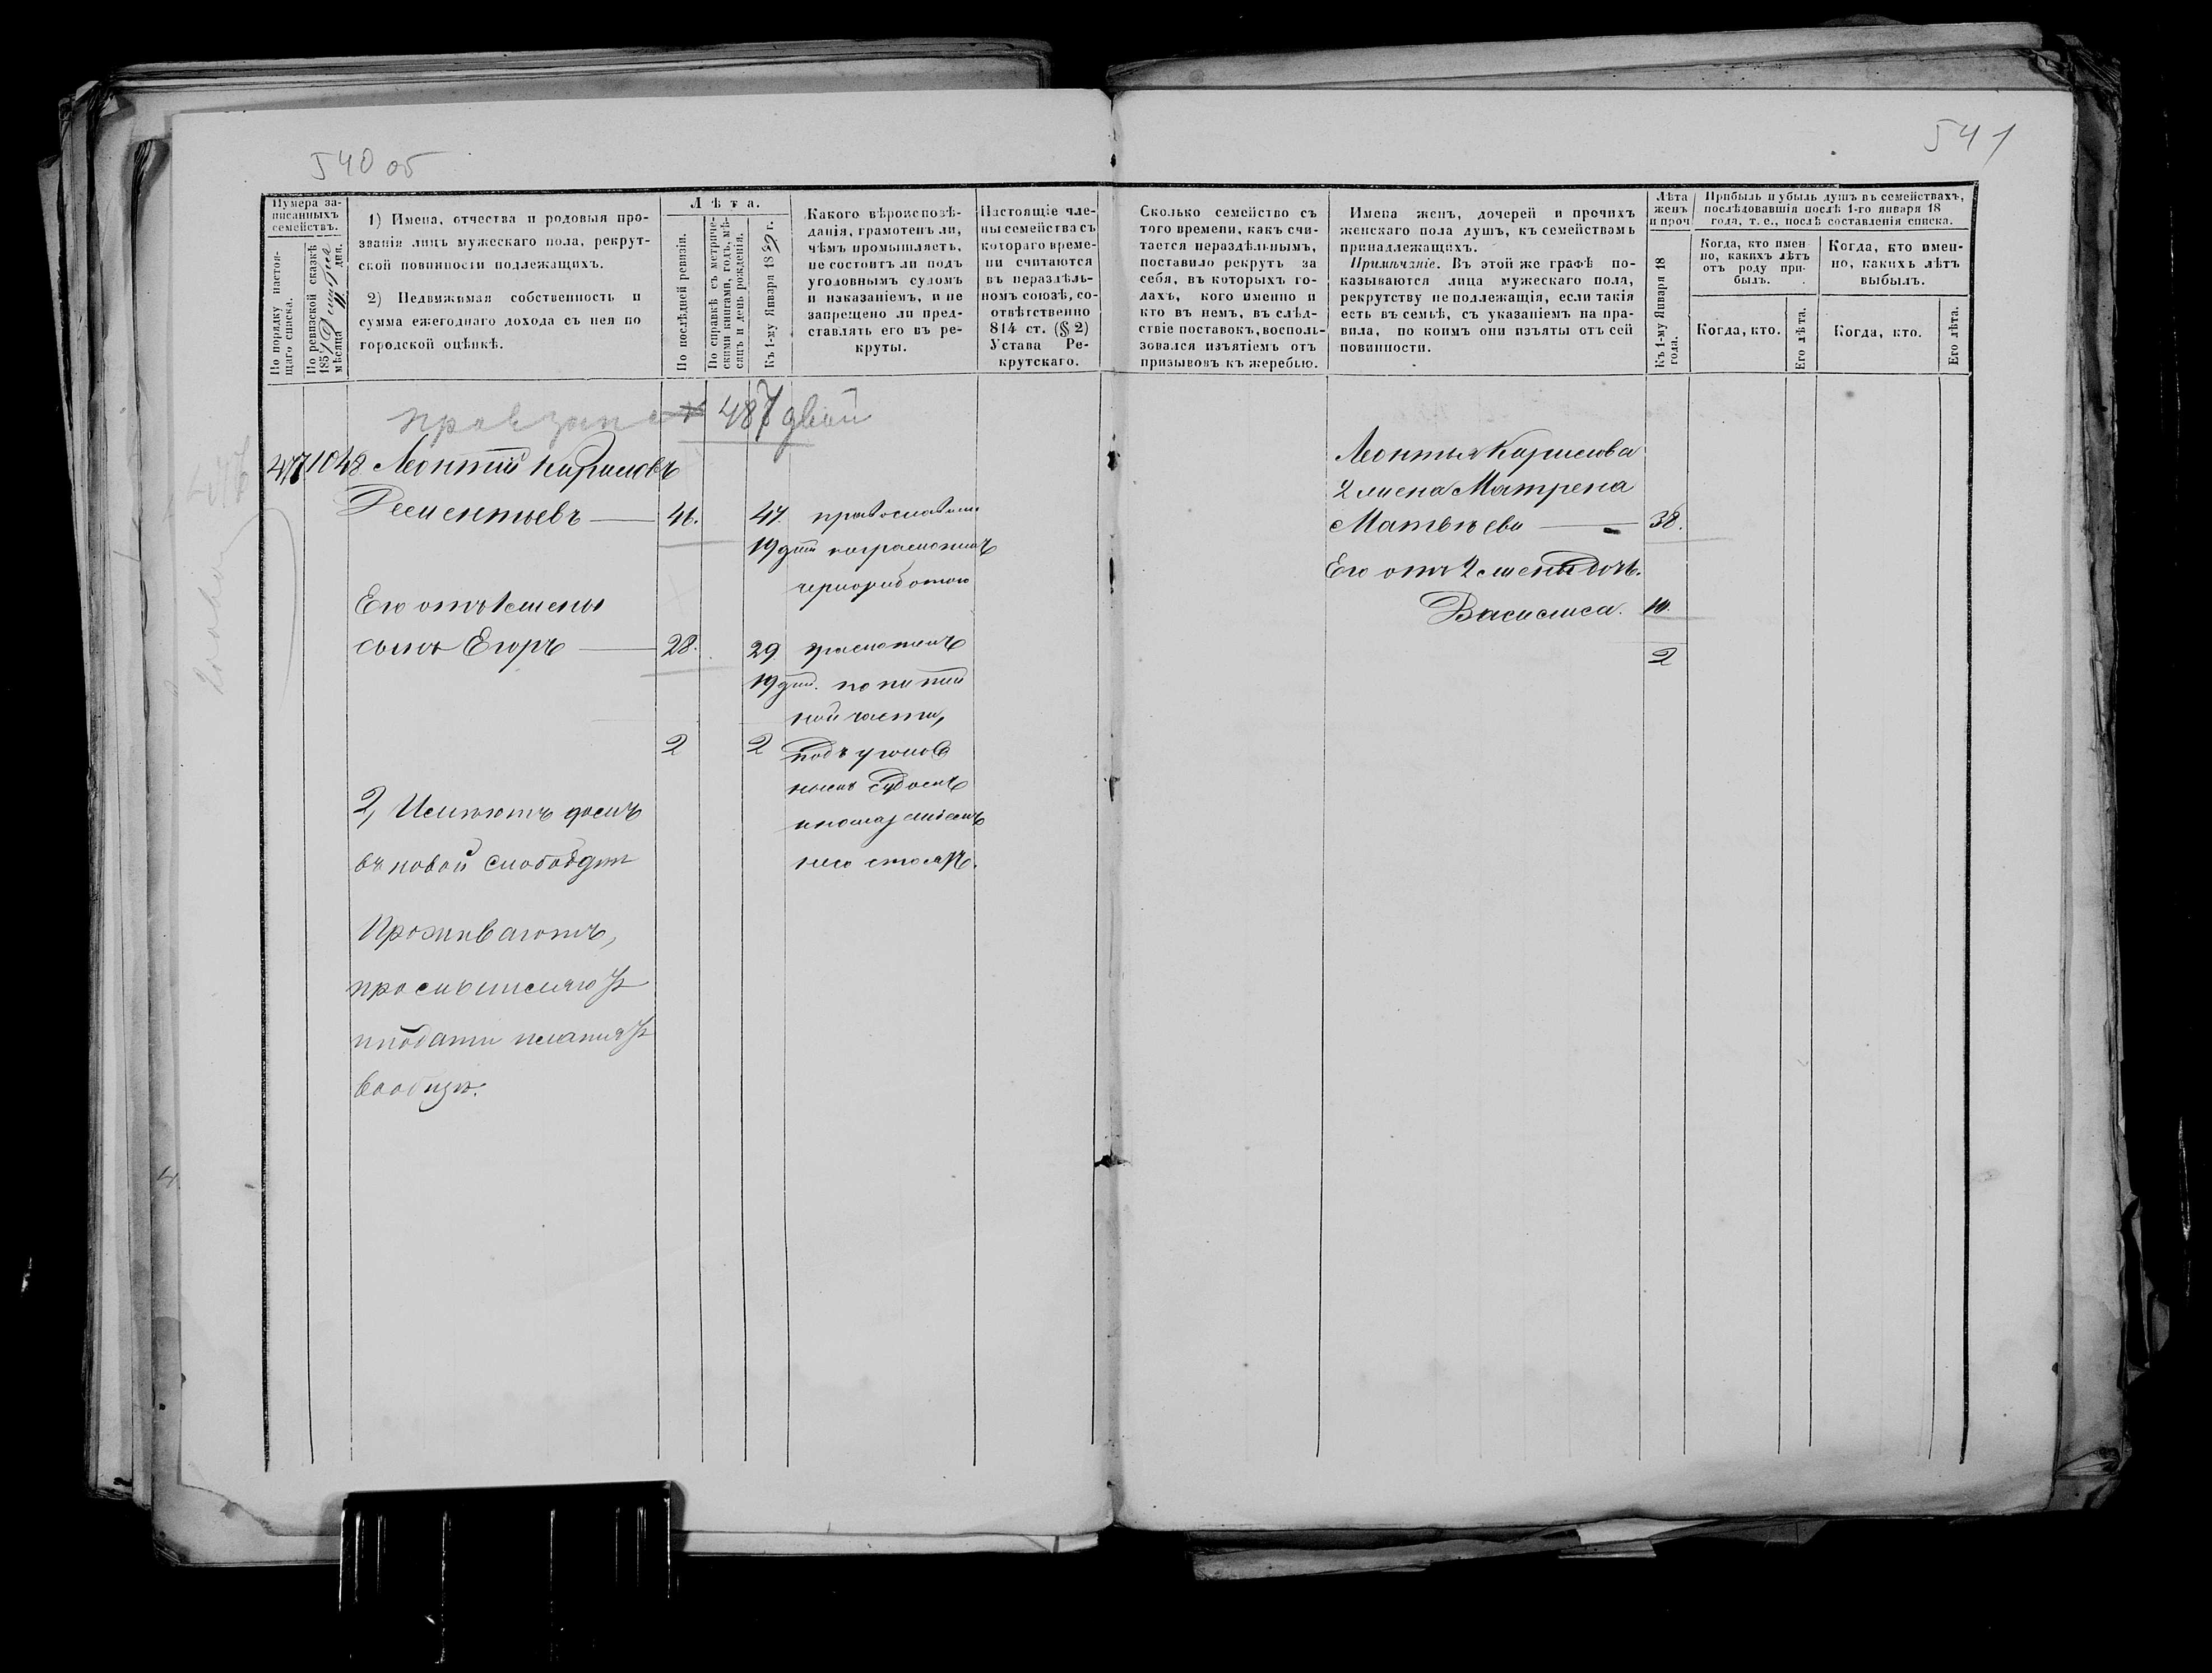 540 об
541
Нумера за-
писанныхъ
семействъ.
По порядку настоя-
щаго списка.
По ревизской сказкѣ
185
мѣсяца 11 дня.
1) Имена, отчества и родовыя про-
званія лицъ мужескаго пола, рекрут-
ской повинности подлежащихъ.
2) Недвижимая собственность и
сумма ежегоднаго дохода съ нея по
городской оцѣнкѣ.
Лѣта.
По послѣдней ревизіи.
По справкѣ съ метриче-
скими книгами, годъ, мѣ-
сяцъ и день рожденія.
Къ 1-му Января 1859 г.
Какого вѣроисповѣ-
данія, грамотенъ ли,
чѣмъ промышляетъ,
не состоитъ ли подъ
уголовнымъ судомъ
и наказаніемъ, и не
запрещено ли пред-
ставлять его въ ре-
круты.
Настоящіе чле-
ны семейства съ
котораго време-
ни считаются
въ нераздѣль-
номъ союзѣ, со-
отвѣтственно
814 ст. (§ 2)
Устава Ре-
крутскаго.
Сколько семейство съ
того времени, какъ счи-
тается нераздѣльнымъ,
поставило рекрутъ за
себя, въ которыхъ го-
дахъ, кого именно и
кто въ немъ, въ слѣд-
ствіе поставокъ, восполь-
зовался изъятіемъ отъ
призывовъ къ жеребью.
Имена женъ, дочерей и прочихъ
женскаго пола душъ, къ семействамъ
принадлежащихъ.
Примѣчаніе. Въ этой же графѣ по-
казываются лица мужескаго пола,
рекрутству не подлежащія, если такія
есть въ семьѣ, съ указаніемъ на пра-
вила, по коимъ они изъяты отъ сей
повинности.
Лѣта
женъ
и проч
Къ 1-му Января 18
года.
Прибыль и убыль душъ въ семействахъ,
послѣдовавшія послѣ 1-го января 18
года, т. е., послѣ составленія списка.
Когда, кто имен-
но, какихъ лѣтъ
отъ роду при-
былъ.
Когда, кто имен-
но, какихъ лѣтъ
выбылъ.
Когда, кто.
Его лѣта.
Когда, кто.
Его лѣта.
487 двой
477 1048 Леонтій Кириловъ
Рементьевъ 46. 47. православн
19 дни неграмотенъ
чернработою
Его отъ 1 жены
сынъ Егоръ 28. 29. грамотенъ
19 дни. по питей
ной части,
2 2 подъ уголов
нымъ судомъ
и наказаніемъ
не состоитъ.
2, Имѣютъ домъ
въ новой слободѣ
Проживаютъ,
промышляютъ
и подати платятъ
вообще.
Леонтья Кирилова
2 жена Матрена
Матвѣева 38.
Его отъ 2 жены дочь.
Василиса. 10.
2